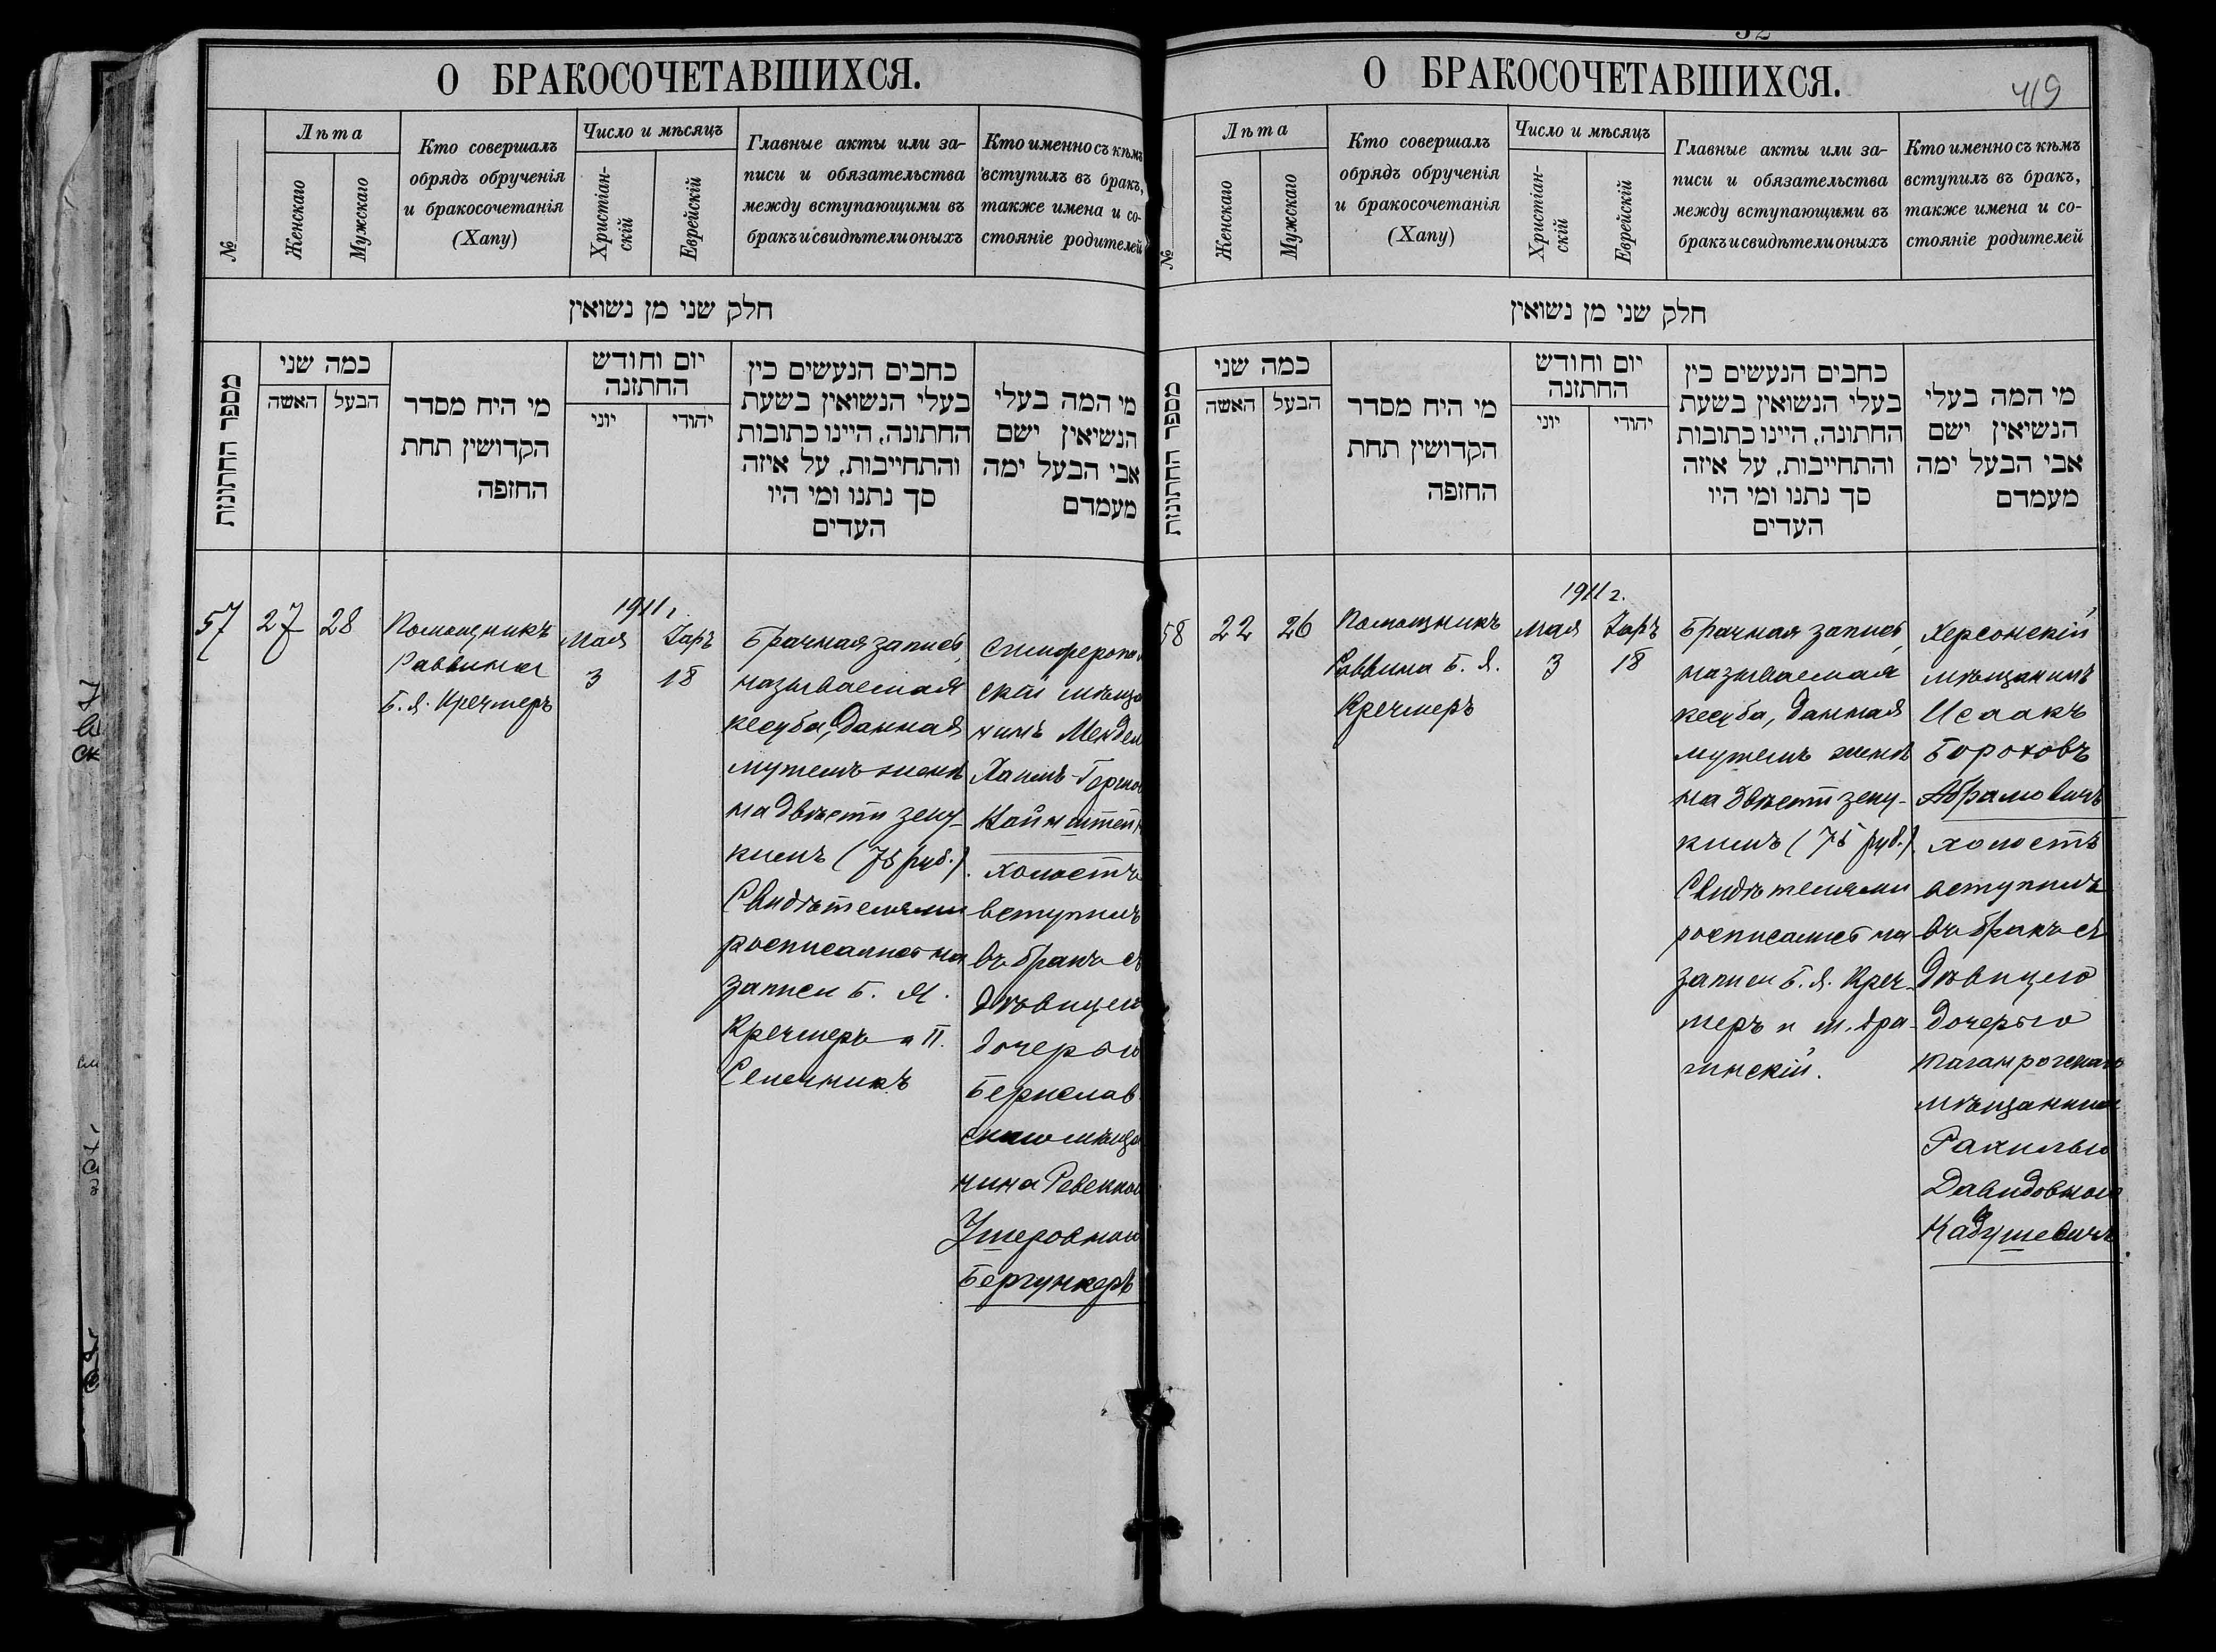 О БРАКОСОЧЕТАВШИХСЯ.
№
Лѣта
Женскаго
Мужскаго
Кто совершалъ
обрядъ обрученія
и бракосочетанія
(Хапу)
Число и мѣсяцъ
Христіан-
скій
Еврейскій
Главные акты или за-
писи и обязательства
между вступающими въ
бракъ и свидѣтели оныхъ
Кто именно съ кѣмъ
вступилъ въ бракъ,
также имена и со-
стояніе родителей
חלק שני מן נשואין
מספר החתונות
כמה שני
האשה
הבעל
מי היח מסדר
הקדושין תחת
החופה
יום וחודש
החתונה
יוני
יהודי
כחבים הנעשים כין
בעלי הנשואין בשעת
החתונה, היינו כתובות
והתחייבות, על איזה
סך נתנו ומי היו
העדים
מי המה בעלי
הנשיאין ישם
אבי הבעל ימה
מעמדם
57
27
28
Помощникъ
Раввина
Б. Я. Кречмеръ
1911 г.
Мая
3
Іаръ
18
Брачная запись,
называемая
кесуба, данная
мужемъ женѣ
на двѣсти зеку-
кимъ (75 руб.).
Свидѣтелями
росписались на
записи Б. Я.
Кречмеръ и П.
Селечникъ
Симферопол
скій мѣща
нинъ Мендел
Хаимъ
холостъ
вступилъ
въ бракъ съ
дѣвицею
дочерью
Берислав
скаго мѣща
нина Ревеккою
Ушеровною
Бергункеръ
О БРАКОСОЧЕТАВШИХСЯ.
419
№
Лѣта
Женскаго
Мужскаго
Кто совершалъ
обрядъ обрученія
и бракосочетанія
(Хапу)
Число и мѣсяцъ
Христіан-
скій
Еврейскій
Главные акты или за-
писи и обязательства
между вступающими въ
бракъ и свидѣтели оныхъ
Кто именно съ кѣмъ
вступилъ въ бракъ,
также имена и со-
стояніе родителей
חלק שני מן נשואין
מספר החתונות
כמה שני
האשה
הבעל
מי היח מסדר
הקדושין תחת
החופה
יום וחודש
החתונה
יוני
יהודי
כחבים הנעשים כין
בעלי הנשואין בשעת
החתונה, היינו כתובות
והתחייבות, על איזה
סך נתנו ומי היו
העדים
מי המה בעלי
הנשיאין ישם
אבי הבעל ימה
מעמדם
58
22
26
Помощникъ
Раввина Б. Я.
Кречмеръ
1911 г.
Мая
3
Іаръ
18
Брачная запись,
называемая
кесуба, данная
мужемъ женѣ
на двѣсти зеку-
кимъ (75 руб.).
Свидѣтелями
росписались на
записи Б. Я. Креч-
меръ и М. Дра-
гинскій.
Херсонскій
мѣщанинъ
Исаакъ
Бороховъ
Абрамовичъ
холостъ
вступилъ
въ бракъ съ
дѣвицею
дочерью
таганрогскаго
мѣщанина
Рахилью
Давидовною
Кадушевичъ